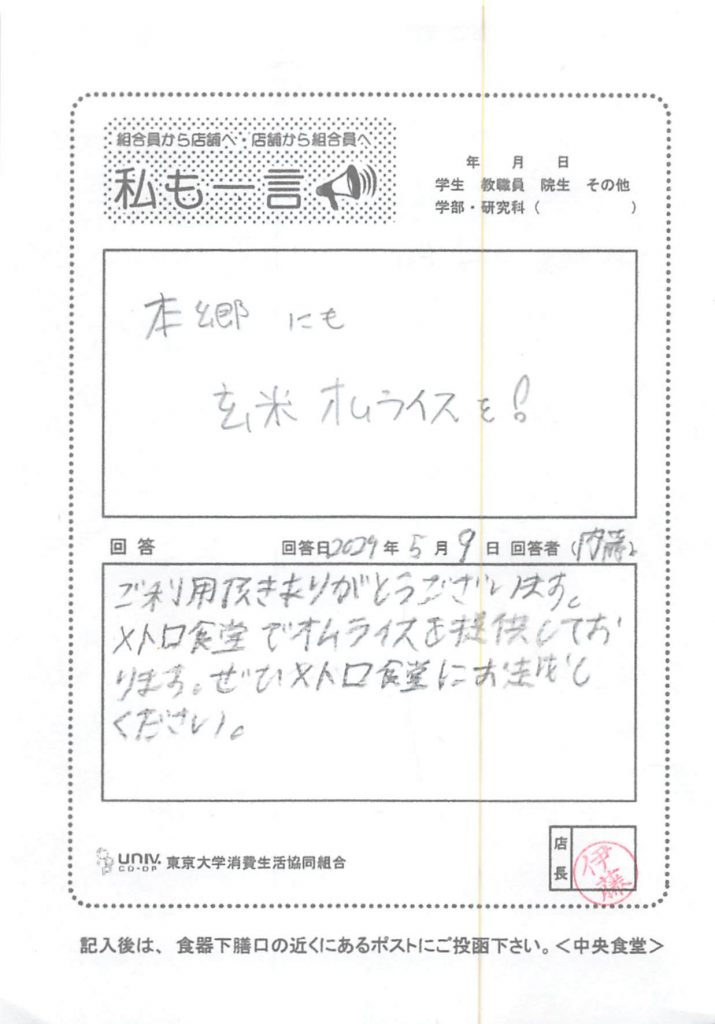 組合員から店舗へ・店舗から組合員へ
私も一言
年 月 日
学生 教職員 院生 その他
学部・研究科( )
本郷 にも
玄米 オムライス を!
回答 回答日2024年5月9日 回答者
ご利用頂きありがとうございます。
メトロ食堂でオムライスを提供してお
ります。ぜひメトロ食堂にお越し
ください。
UNIV. CO-OP 東京大学消費生活協同組合
店長
伊藤
記入後は、食器下膳口の近くにあるポストにご投函下さい。<中央食堂>